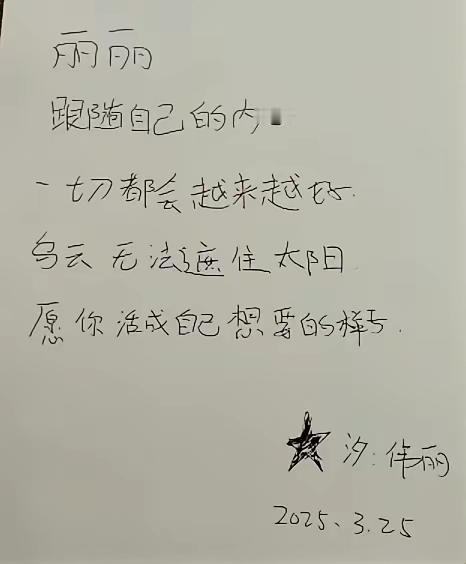 丽丽
跟随自己的内
一切都会越来越好.
乌云无法遮住太阳
愿你活成自己想要的样子.
汐:伟丽
2025、3.25